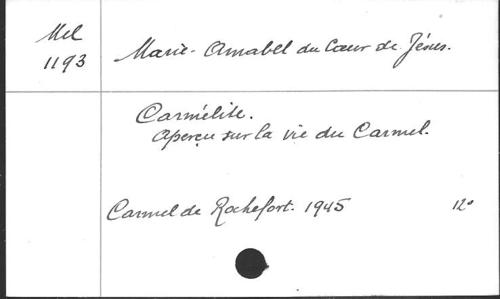 Mel
1193
Marie-Amabel du Cœur de Jésus.
Carmélite.
Aperçu sur la vie du Carmel.
Carmel de Rochefort. 1945 12°